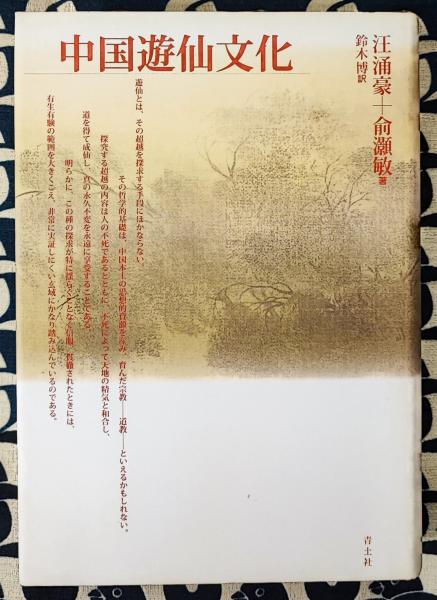 中国遊仙文化
汪涌豪＋兪灝敏 著
鈴木博 訳
遊仙とは、その超越を探求する手段にほかならない。
その哲学的基礎は、中国本土の思想的資源を産み、育んだ宗教――道教――といえるかもしれない。
探究する超越の内容は人の不死であるとともに、不死によって天地の精気と和合し、
道を得て成仙し、真の永久不変を永遠に享受することである。
明らかに、この種の探求が特に揺らぐことなく信服、貫徹されたときには、
有生有験の範囲を大きくこえ、非常に実証しにくい玄域にかなり踏み込んでいるのである。
青土社